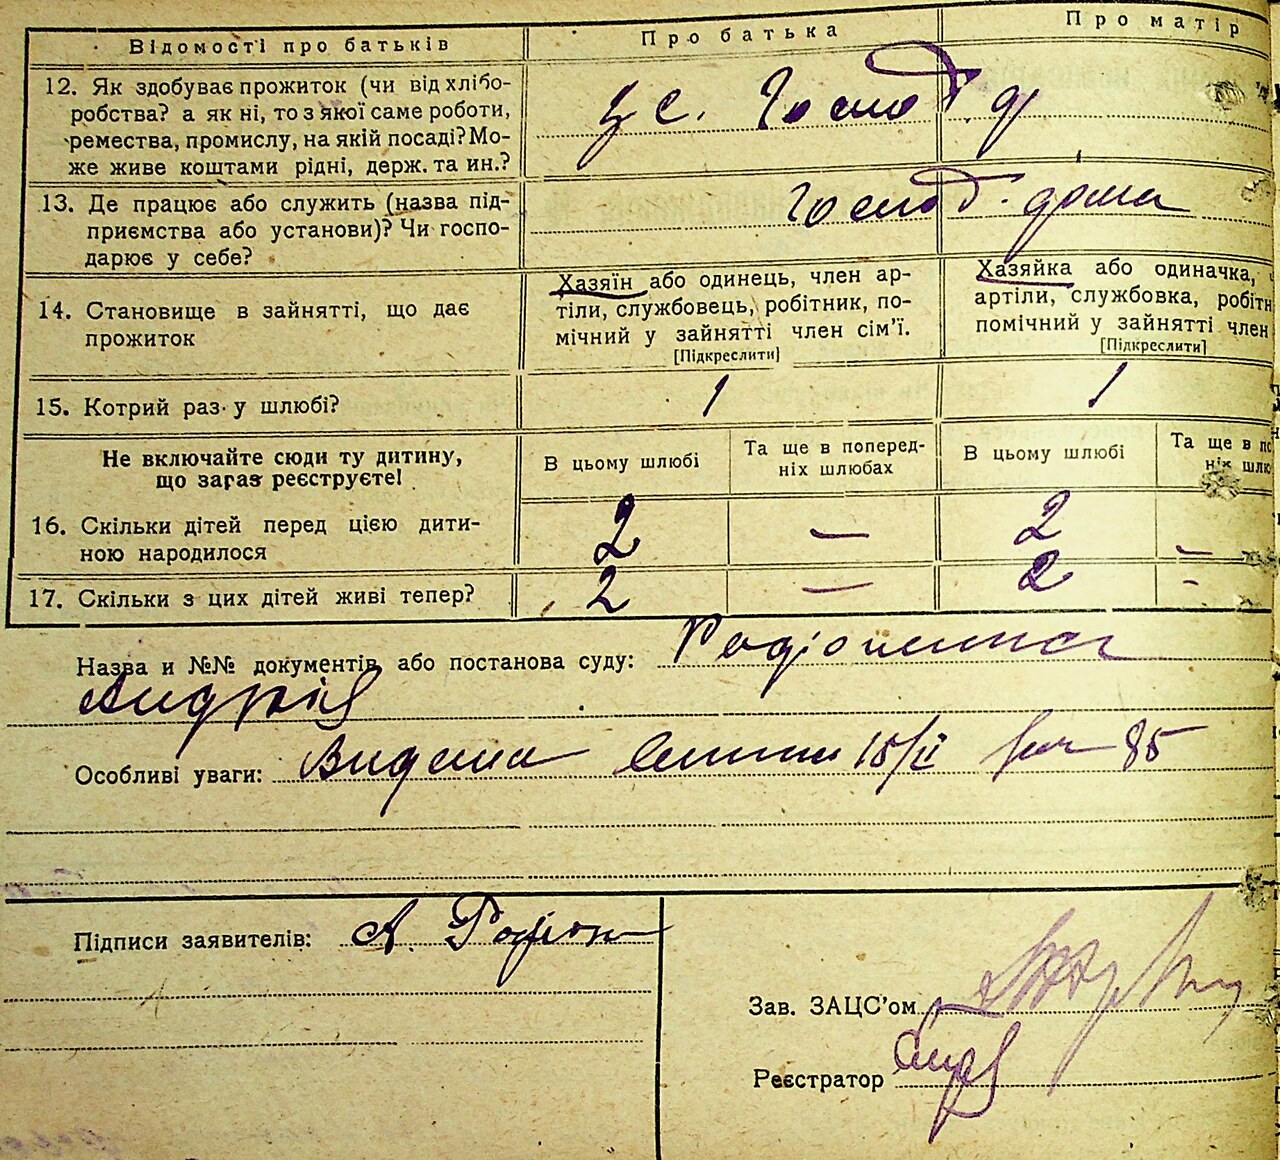 Відомості про батьків
Про батька
Про матір
12. Як здобуває прожиток (чи від хлібо-
робства? а як ні, то з якої саме роботи,
ремества, промислу, на якій посаді? Мо-
же живе коштами рідні, держ. та ин.?
с. Господ.
13. Де працює або служить (назва під-
приємства або установи)? Чи госпо-
дарює у себе?
Господ. дома
14. Становище в зайнятті, що дає
прожиток
Хазяїн або одинець, член ар-
тіли, службовець, робітник, по-
мічний у зайнятті член сім'ї.
[Підкреслити]
Хазяйка або одиначка,
артіли, службовка, робітн
помічний у зайнятті член
[Підкреслити]
15. Котрий раз у шлюбі?
1
1
Не включайте сюди ту дитину,
що зараз реєструєте!
В цьому шлюбі
Та ще в поперед-
ніх шлюбах
В цьому шлюбі
Та ще в по
ніх шлю
16. Скільки дітей перед цією дити-
ною народилося
2 — 2 –
17. Скільки з цих дітей живі тепер?
2 — 2 -
Назва и №№ документів або постанова суду:
Андрій
Особливі уваги: Видана 15/II 85
Підписи заявителів: А. Родіон
Зав. ЗАЦС'ом
Реєстратор